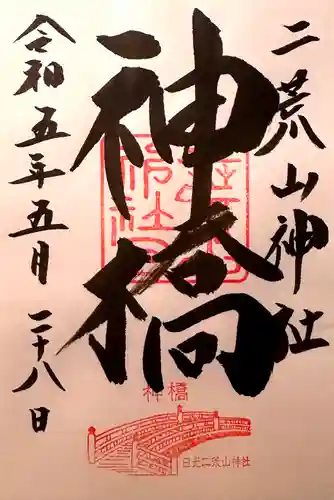 二荒山神社
神橋
令和五年五月二十八日
神橋
日光二荒山神社